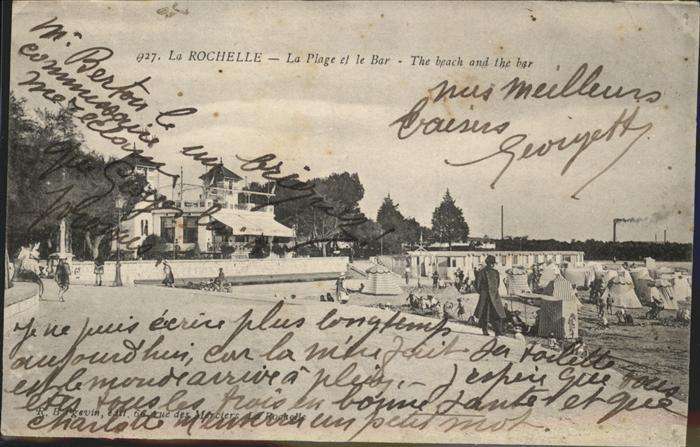 927. La ROCHELLE — La Plage et le Bar - The beach and the bar
Mr Berton le
commissaire
nus meilleurs
baisers
Georgette
Je ne puis écrire plus longtemps
aujourd'hui, car la mère fait sa toilette
et le monde arrive à plein. - J'espère que vous
êtes tous les trois en bonne santé et que
Charlotte un petit mot
R. Bergevin, édit. 60 rue des Merciers, La Rochelle